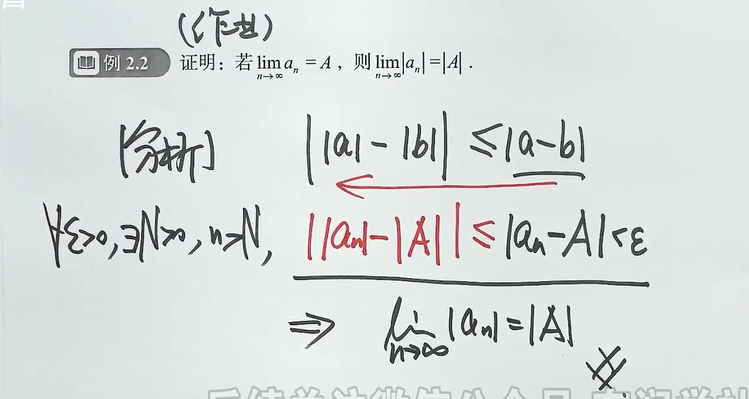 (作业)
例 2.2 证明：若 lim_{n→∞} aₙ = A，则 lim_{n→∞} |aₙ| = |A|.
[分析] ||a| - |b|| ≤ |a-b|
∀ε>0, ∃N>0, n>N, ||aₙ| - |A|| ≤ |aₙ - A| < ε
⇒ lim_{n→∞} |aₙ| = |A|